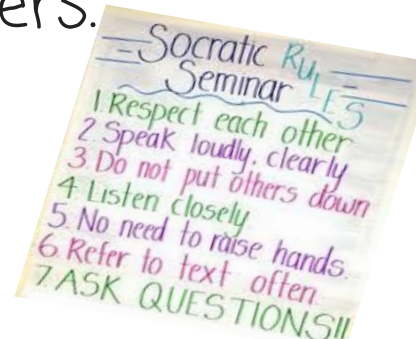 ers.
Socratic RULES
Seminar
1. Respect each other
2. Speak loudly, clearly
3. Do not put others down
4. Listen closely
5. No need to raise hands.
6. Refer to text often
7. ASK QUESTIONS!!